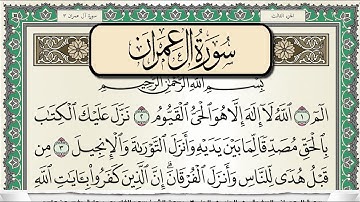 سورة آل عمران ٣
الجزء الثالث
سُورَةُ آلِ عِمْرَانَ
بِسْمِ اللَّهِ الرَّحْمَٰنِ الرَّحِيمِ
الٓمٓ ١ اللَّهُ لَا إِلَٰهَ إِلَّا هُوَ الْحَيُّ الْقَيُّومُ ٢ نَزَّلَ عَلَيْكَ الْكِتَٰبَ
بِالْحَقِّ مُصَدِّقًا لِّمَا بَيْنَ يَدَيْهِ وَأَنزَلَ التَّوْرَىٰةَ وَالْإِنجِيلَ ٣ مِن
قَبْلُ هُدًى لِّلنَّاسِ وَأَنزَلَ الْفُرْقَانَ ۗ إِنَّ الَّذِينَ كَفَرُوا بِـَٔايَٰتِ اللَّهِ